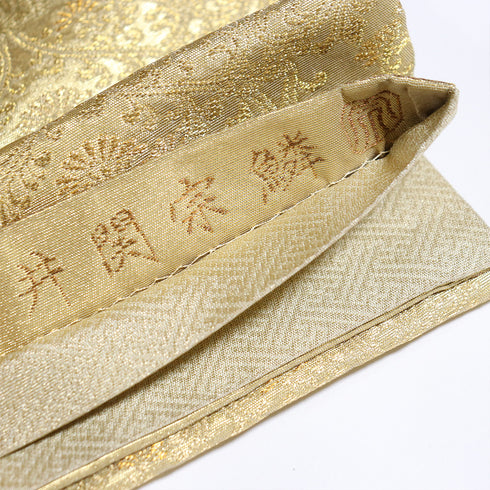 井関宗鱗